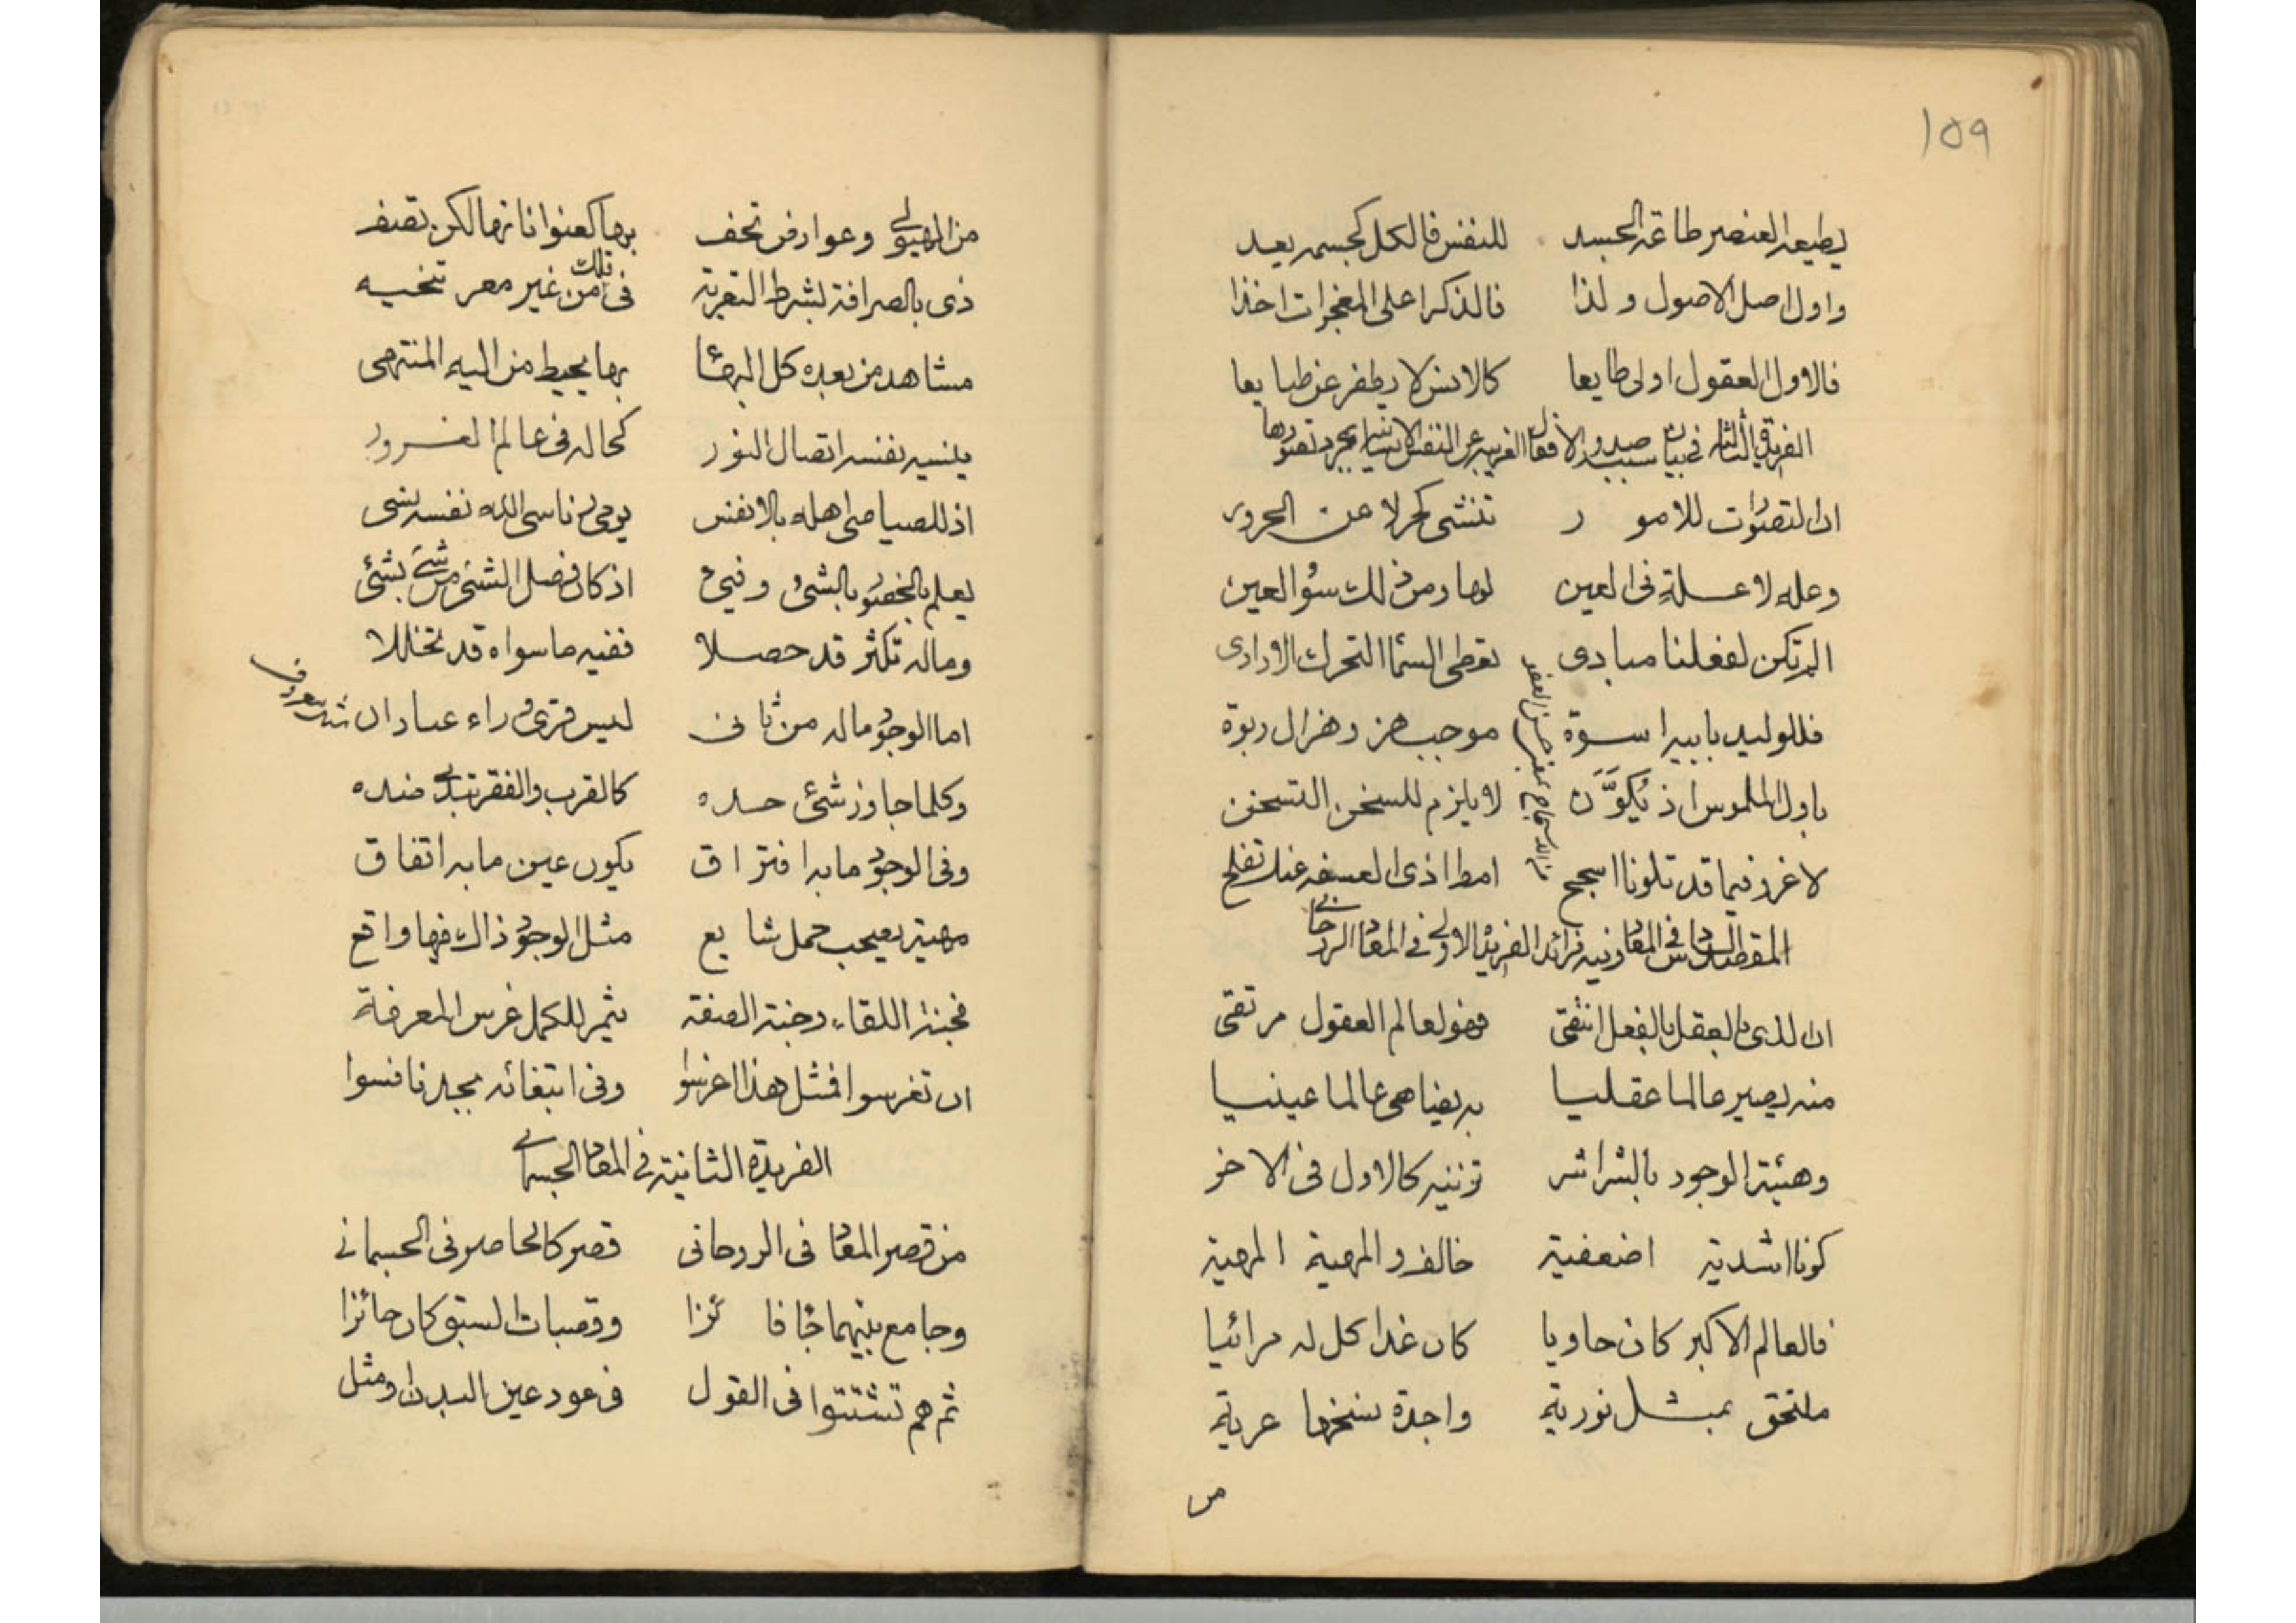 ١٥٩
يطيعه العنصر طاعة الجسد للنفس فالكل كجسمه يعد
واول اصل الاصول ولذا فالذكر اعلى المعجزات اخذا
فالاول العقول اولى طايعا كالانس لا يطفر عن طبايعا
الفريدة الثالثة فى بيان سبب صدور الافعال الغريبة عن النفس الانسانية بمجرد تصورها
ان التصورات للامور تنشى كحر لا عن الحرور
وعلة لا علة فى العين لها ومن ذلك سوء العين
الم تكن لفعلنا مبادى تعطى السماء التحرك الارادى
فللوليد بابيه اسوة موجب هز وهزال ربوة
باول الملموس اذ يكون لا يلزم للسخن التسخن
لا غرو فيما قد تلونا اسجح امط اذى العسف عنك تفلح
المقصد السادس فى المعاد وفيه فرائد الفريدة الاولى فى المعاد الروحانى
ان الذى بالعقل بالفعل انتقى فهو لعالم العقول مرتقى
منه يصير عالما عقليا به يضاهى عالما عينيا
وهيئة الوجود بالشراشر تزينه كالاول فى الاخر
كونا اشدية اضعفية خالف والمهية المهية
فالعالم الاكبر كان حاويا كان غدا كل له مرائيا
ملتحق بمثل نورية واجدة سنخها عرية
من
من الهيولى وعوارض تحف بها كعنوانا نها لكن تصف
ذى بالصرافة بشرط التعرية فى تلك من غير معر تنحيه
مشاهد من بعده كل البها بها يحيط من اليه المنتهى
ينسيه نفسه اتصال النور كحاله فى عالم الغرور
اذ للصياصى اهله بالانفس يومى ناسى الله نفسه نسى
يعلم بالخفض بالشئ وفئ اذ كان فصل الشئ من شئ بشئ
وماله تكثر قد حصلا ففيه ما سواه قد تخللا
اما الوجود ماله من ثانى ليس قرى وراء عبادان
وكلما جاوز شئ حده كالقرب والفقر تبدى ضده
وفى الوجود ما به افتراق يكون عين ما به اتفاق
مهية يصحب حمل شايع مثل الوجود ذاك فيها واقع
فجنة اللقاء وجنة الصفة يثمر للكمل غرس المعرفة
ان تغرسوا فمثل هذا اغرسوا وفى ابتغائه بجد نافسوا
الفريدة الثانية فى المعاد الجسمانى
من قصر المعاد فى الروحانى قصر كالحاصر فى الجسمانى
وجامع بينهما جا فائزا وقصبات السبق كان حائزا
ثم هم تشتتوا فى القول فى عود عين البدن او مثل